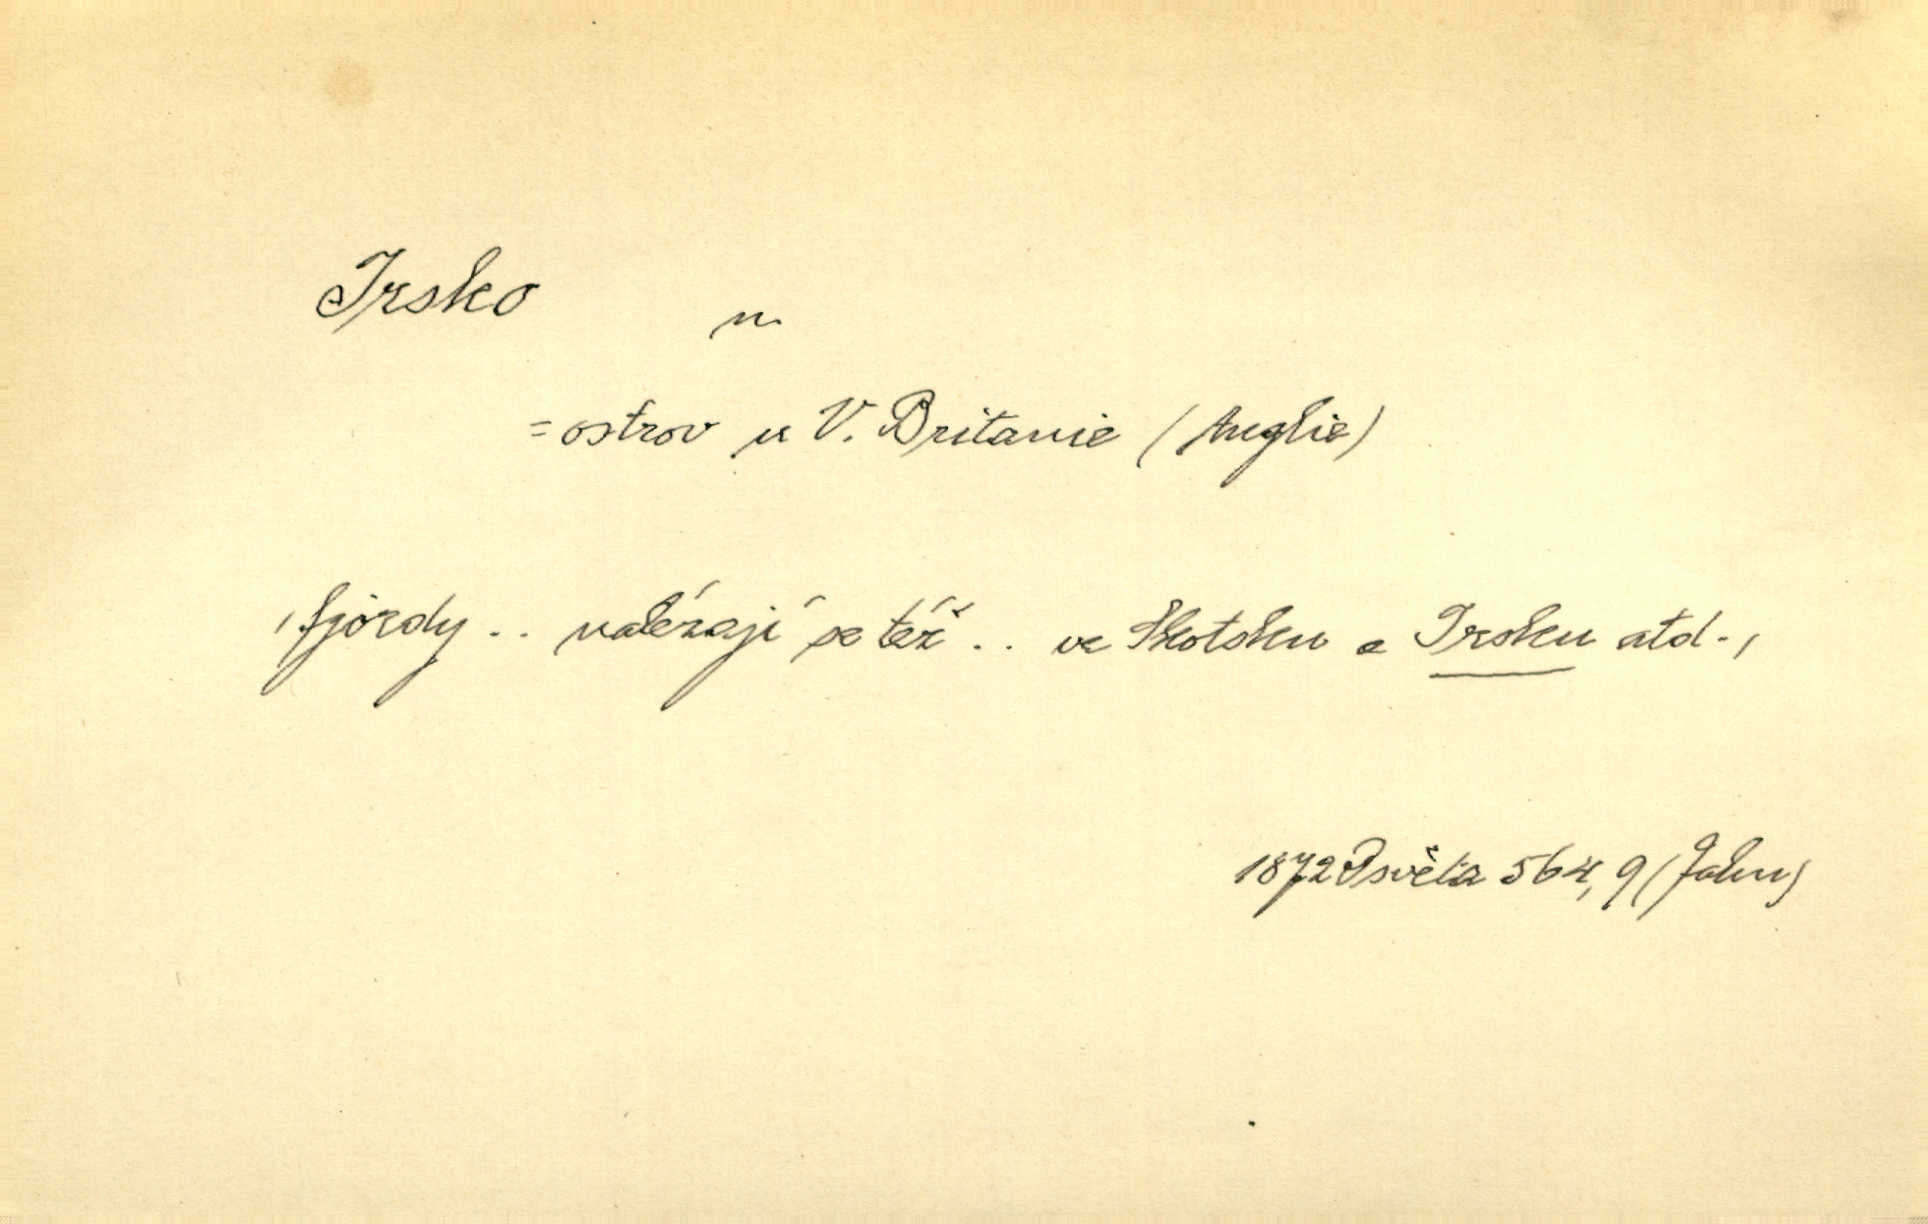 Irsko
n.
= ostrov u V. Britanie (Anglie)
, fjórdy .. nalézají se též .. ve Skotsku a Irsku atd. ,
1872 Osvěta 564, 9 (Jahn)